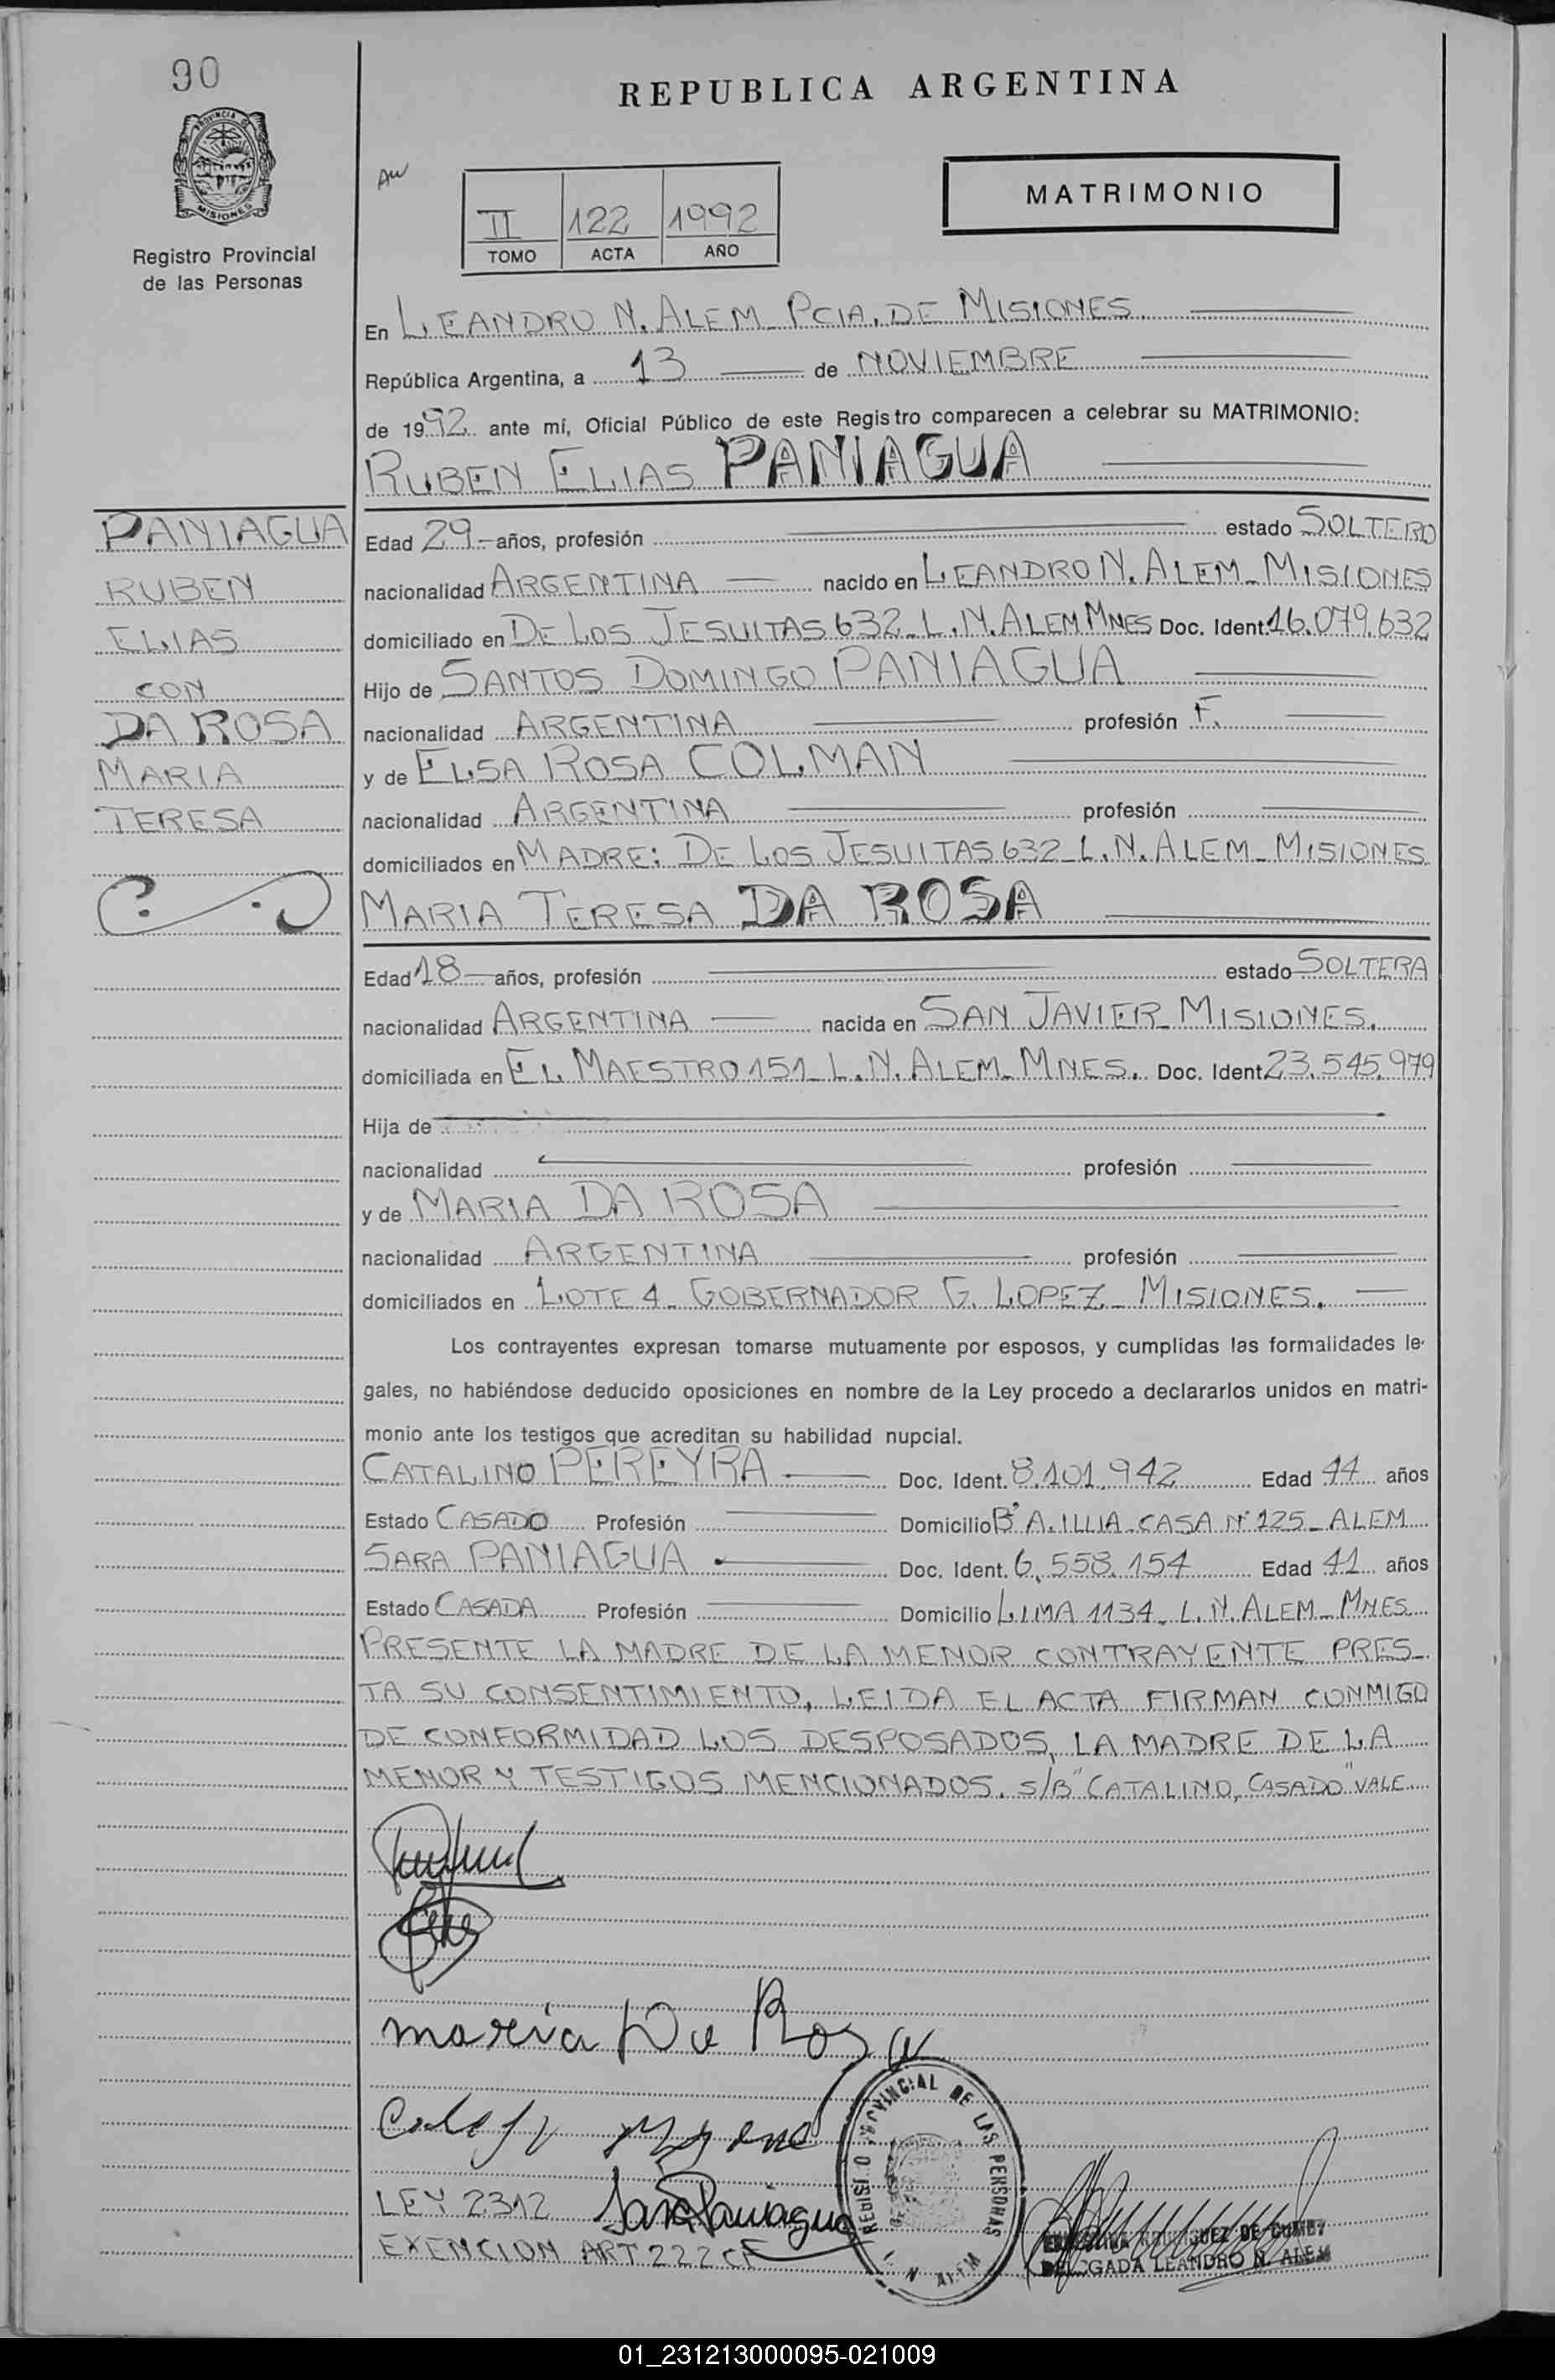 90
REPUBLICA ARGENTINA
PROVINCIA DE
MISIONES
Registro Provincial
de las Personas
II 122 1992
TOMO ACTA AÑO
MATRIMONIO
En LEANDRO N. ALEM_PCIA. DE MISIONES.
República Argentina, a 13 de NOVIEMBRE
de 1992 ante mí, Oficial Público de este Registro comparecen a celebrar su MATRIMONIO:
RUBEN ELIAS PANIAGUA
PANIAGUA
RUBEN
ELIAS
CON
DA ROSA
MARIA
TERESA
Edad 29.- años, profesión estado SOLTERO
nacionalidad ARGENTINA nacido en LEANDRO N. ALEM_MISIONES
domiciliado en DE LOS JESUITAS 632_L.N.ALEM MNES Doc. Ident. 16.079.632
Hijo de SANTOS DOMINGO PANIAGUA
nacionalidad ARGENTINA profesión F.
y de ELSA ROSA COLMAN
nacionalidad ARGENTINA profesión
domiciliados en MADRE: DE LOS JESUITAS 632_L.N.ALEM_MISIONES
MARIA TERESA DA ROSA
Edad 18 años, profesión estado SOLTERA
nacionalidad ARGENTINA nacida en SAN JAVIER_MISIONES.
domiciliada en EL MAESTRO 151_L.N.ALEM_MNES. Doc. Ident. 23.545.979
Hija de
nacionalidad profesión
y de MARIA DA ROSA
nacionalidad ARGENTINA profesión
domiciliados en LOTE 4_GOBERNADOR G. LOPEZ_MISIONES.
Los contrayentes expresan tomarse mutuamente por esposos, y cumplidas las formalidades le-
gales, no habiéndose deducido oposiciones en nombre de la Ley procedo a declararlos unidos en matri-
monio ante los testigos que acreditan su habilidad nupcial.
CATALINO PEREYRA Doc. Ident. 8.101.942 Edad 44 años
Estado CASADO Profesión Domicilio B° A. ILLIA_CASA N° 125_ALEM
SARA PANIAGUA Doc. Ident. 6.558.154 Edad 41 años
Estado CASADA Profesión Domicilio LIMA 1134_L.N.ALEM_MNES
PRESENTE LA MADRE DE LA MENOR CONTRAYENTE PRES_
TA SU CONSENTIMIENTO, LEIDA EL ACTA FIRMAN CONMIGO
DE CONFORMIDAD LOS DESPOSADOS, LA MADRE DE LA
MENOR Y TESTIGOS MENCIONADOS. S/B "CATALINO, CASADO" VALE
maria Da Rosa
LEY 2312 Sara Paniagua
EXENCION ART 222 CF
REGISTRO PROVINCIAL DE LAS PERSONAS
L. N. ALEM
DELEGADA LEANDRO N. ALEM
01_231213000095-021009